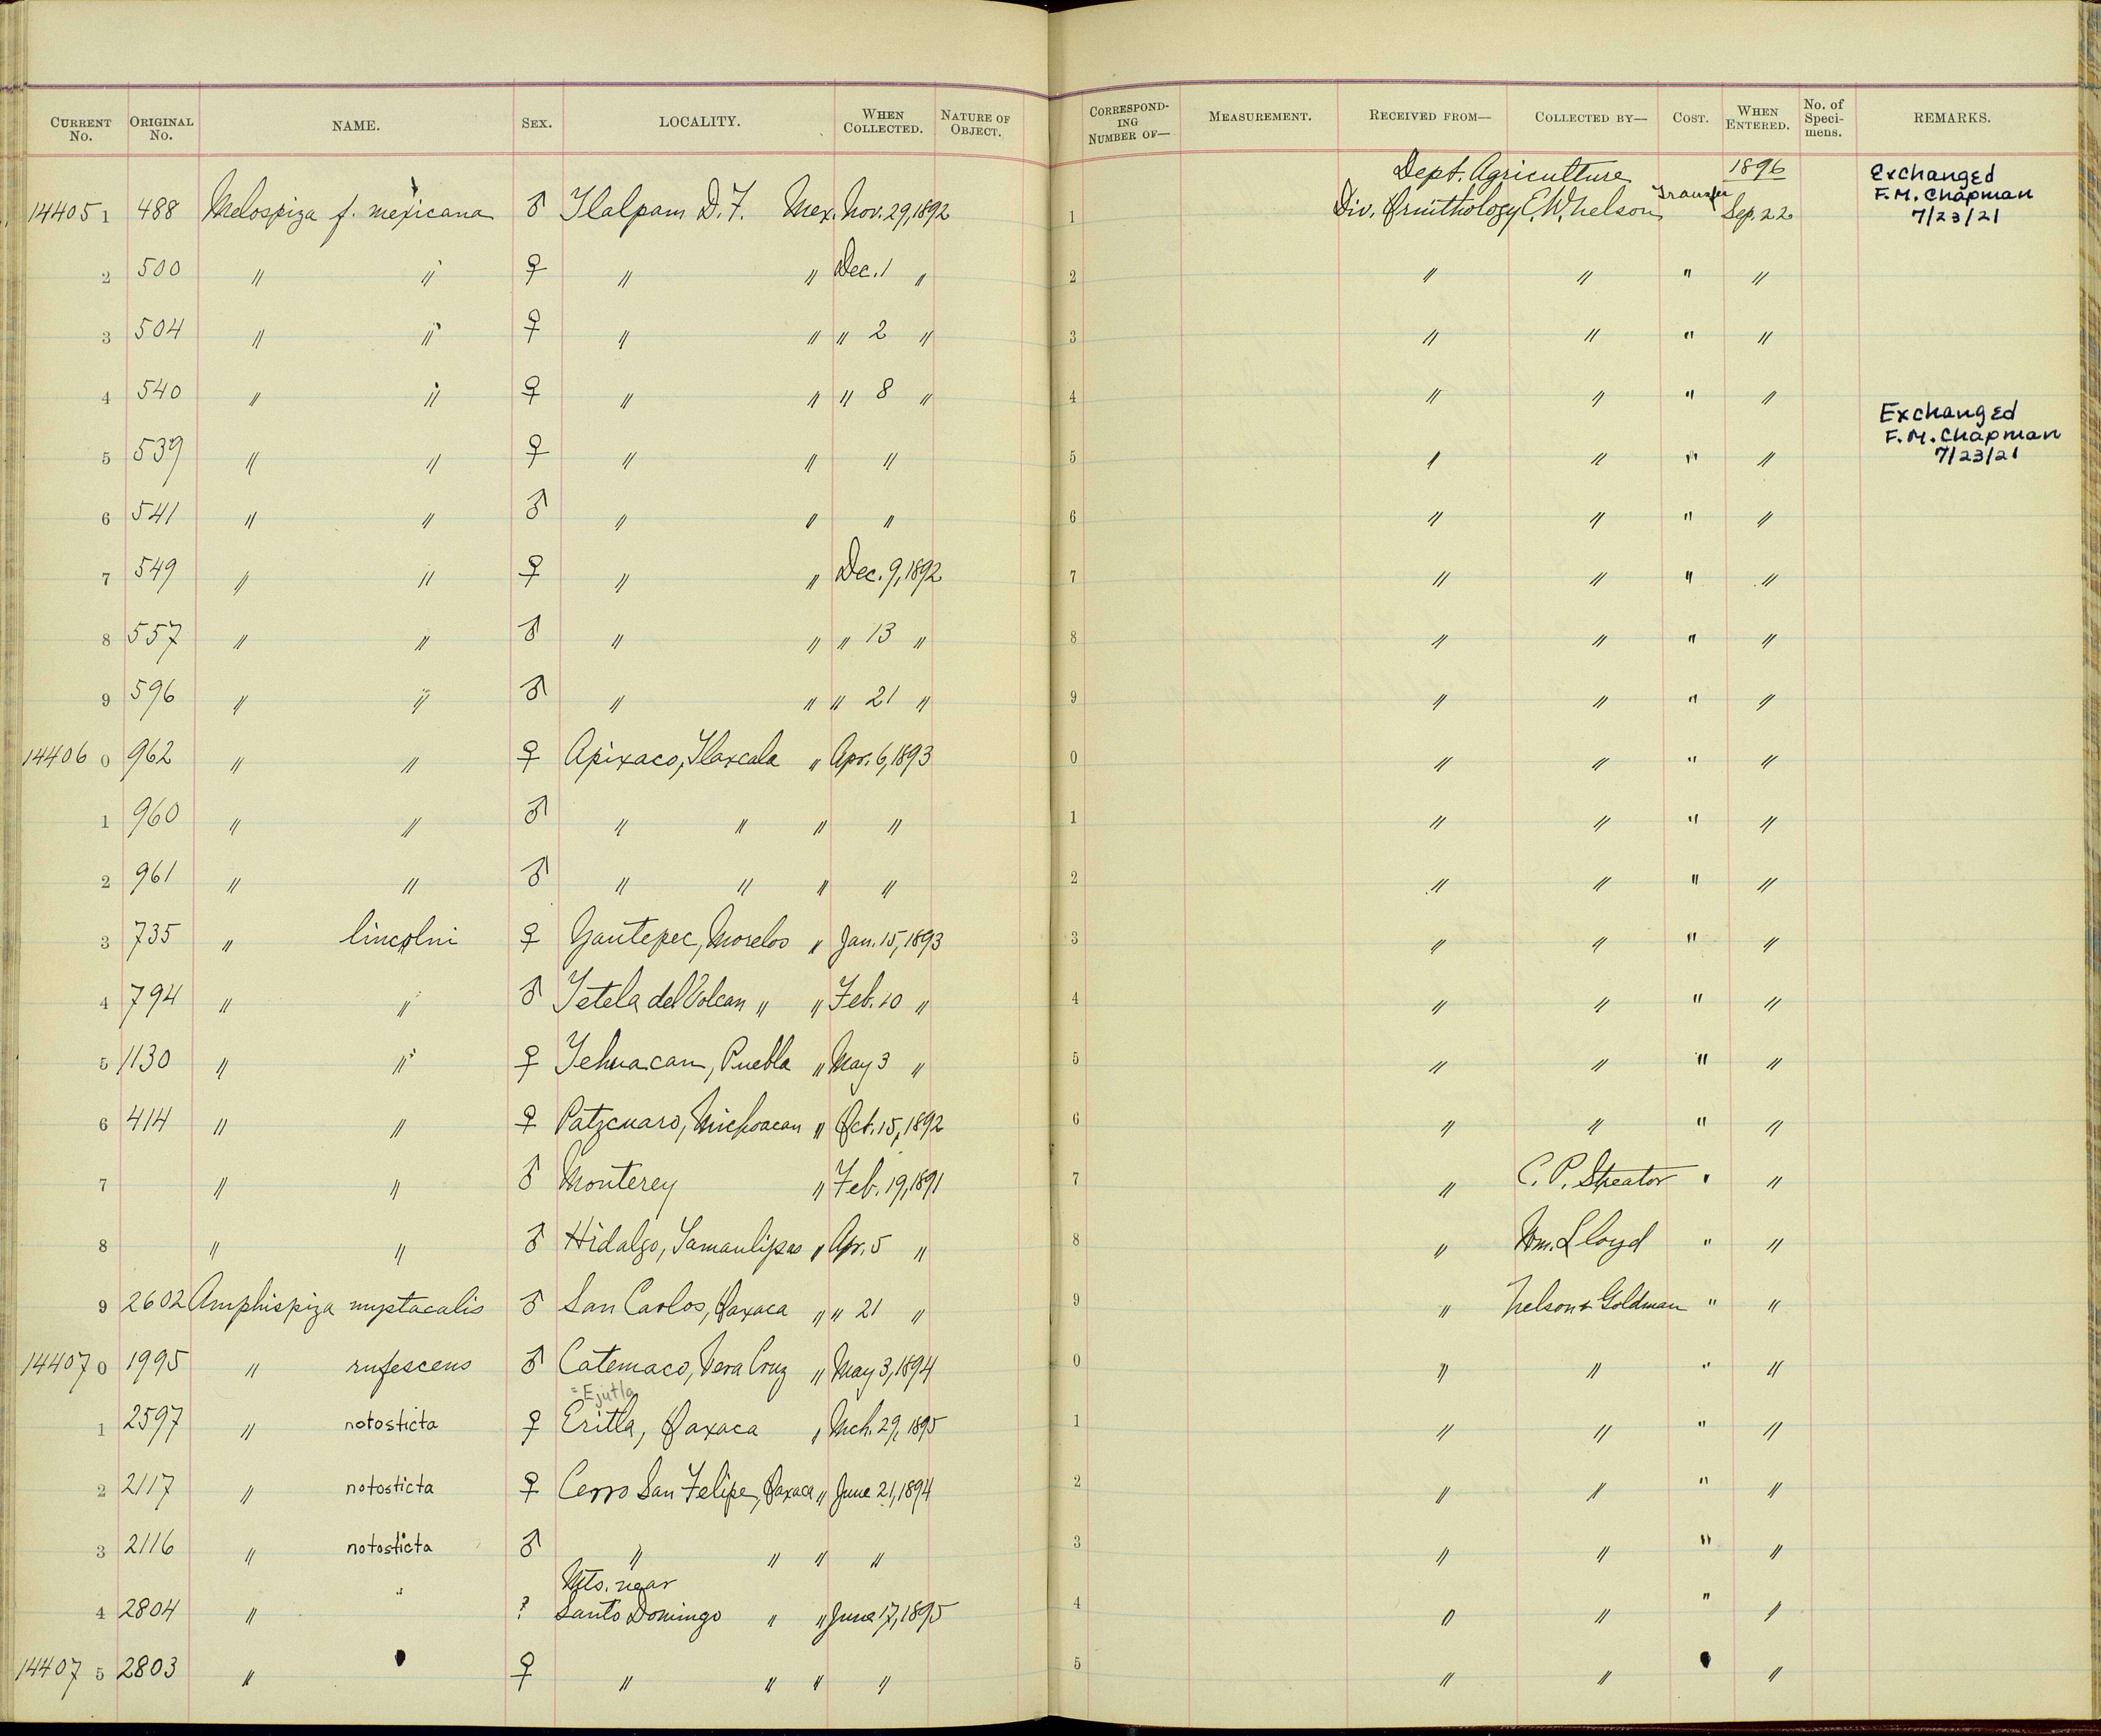 CURRENT No. ORIGINAL No. NAME. SEX. LOCALITY. WHEN COLLECTED. NATURE OF OBJECT. CORRESPONDING NUMBER OF— MEASUREMENT. RECEIVED FROM— COLLECTED BY— COST. WHEN ENTERED. No. of Specimens. REMARKS.
Dept. Agriculture 1896 Exchanged
14405 1 488 Melospiza f. mexicana ♂ Tlalpam D.F. Mex. Nov. 29, 1892 1 Div. Ornithology E.W. Nelson Transfer Sep. 22 F.M. Chapman
7/23/21
2 500 " " ♀ " " Dec. 1 " 2 " " " "
3 504 " " ♀ " " " 2 " 3 " " " "
4 540 " " ♀ " " " 8 " 4 " " " "
Exchanged
F.M. Chapman
5 539 " " ♀ " " " 5 " " " " 7/23/21
6 541 " " ♂ " " " 6 " " " "
7 549 " " ♀ " " Dec. 9, 1892 7 " " " "
8 557 " " ♂ " " " 13 " 8 " " " "
9 596 " " ♂ " " " 21 " 9 " " " "
14406 0 962 " " ♀ Apixaco, Tlaxcala " Apr. 6, 1893 0 " " " "
1 960 " " ♂ " " " " 1 " " " "
2 961 " " ♂ " " " " 2 " " " "
3 735 " lincolni ♀ Yautepec, Morelos " Jan. 15, 1893 3 " " " "
4 794 " " ♂ Tetela del Volcan " " Feb. 10 " 4 " " " "
5 1130 " " ♀ Tehuacan, Puebla " May 3 " 5 " " " "
6 414 " " ♀ Patzcuaro, Michoacan " Oct. 15, 1892 6 " " " "
7 " " ♂ Monterey " Feb. 19, 1891 7 " C. P. Streator " "
8 " " ♂ Hidalgo, Tamaulipas " Apr. 5 " 8 " Wm. Lloyd " "
9 2602 Amphispiza mystacalis ♂ San Carlos, Oaxaca " " 21 " 9 " Nelson & Goldman " "
14407 0 1995 " rufescens ♂ Catemaco, Vera Cruz " May 3, 1894 0 " " " "
= Ejutla
1 2597 " notosticta ♀ Eritla, Oaxaca " Mch. 29, 1895 1 " " " "
2 2117 " notosticta ♀ Cerro San Felipe, Oaxaca " June 21, 1894 2 " " " "
3 2116 " notosticta ♂ " " " " 3 " " " "
Mts. near
4 2804 " " ? Santo Domingo " " June 17, 1895 4 " " " "
14407 5 2803 " ♀ " " " " 5 " " "